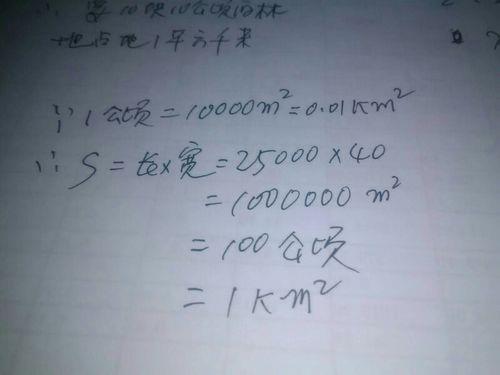 ∴ 每10块10公顷的林
地占地1平方千米
∵ 1公顷=10000m²=0.01Km²
∴ S=长×宽=25000×40
=1000000 m²
=100公顷
=1Km²